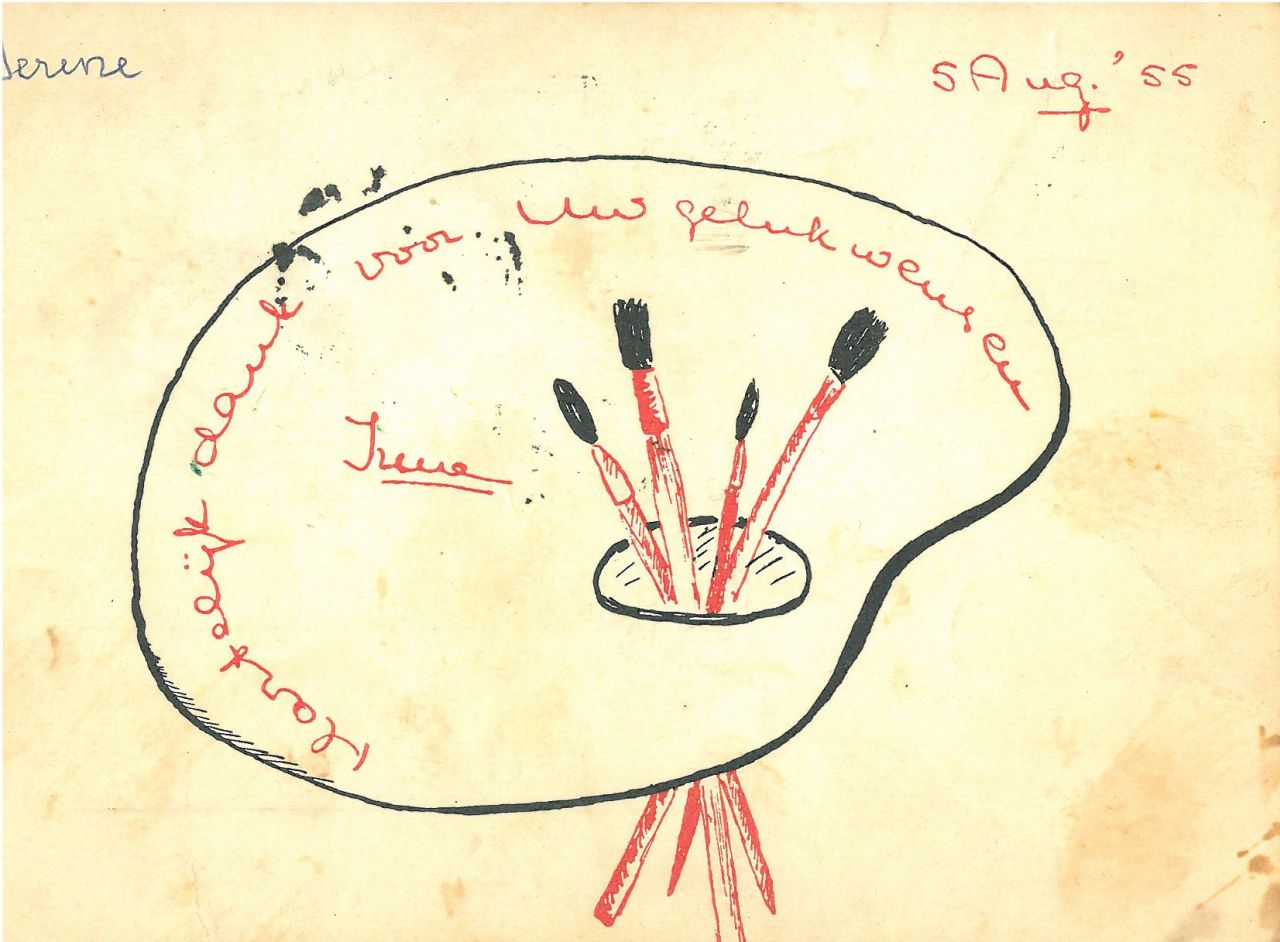 5 Aug. '55
Hartelijk dank voor Uw gelukwensen
Irene